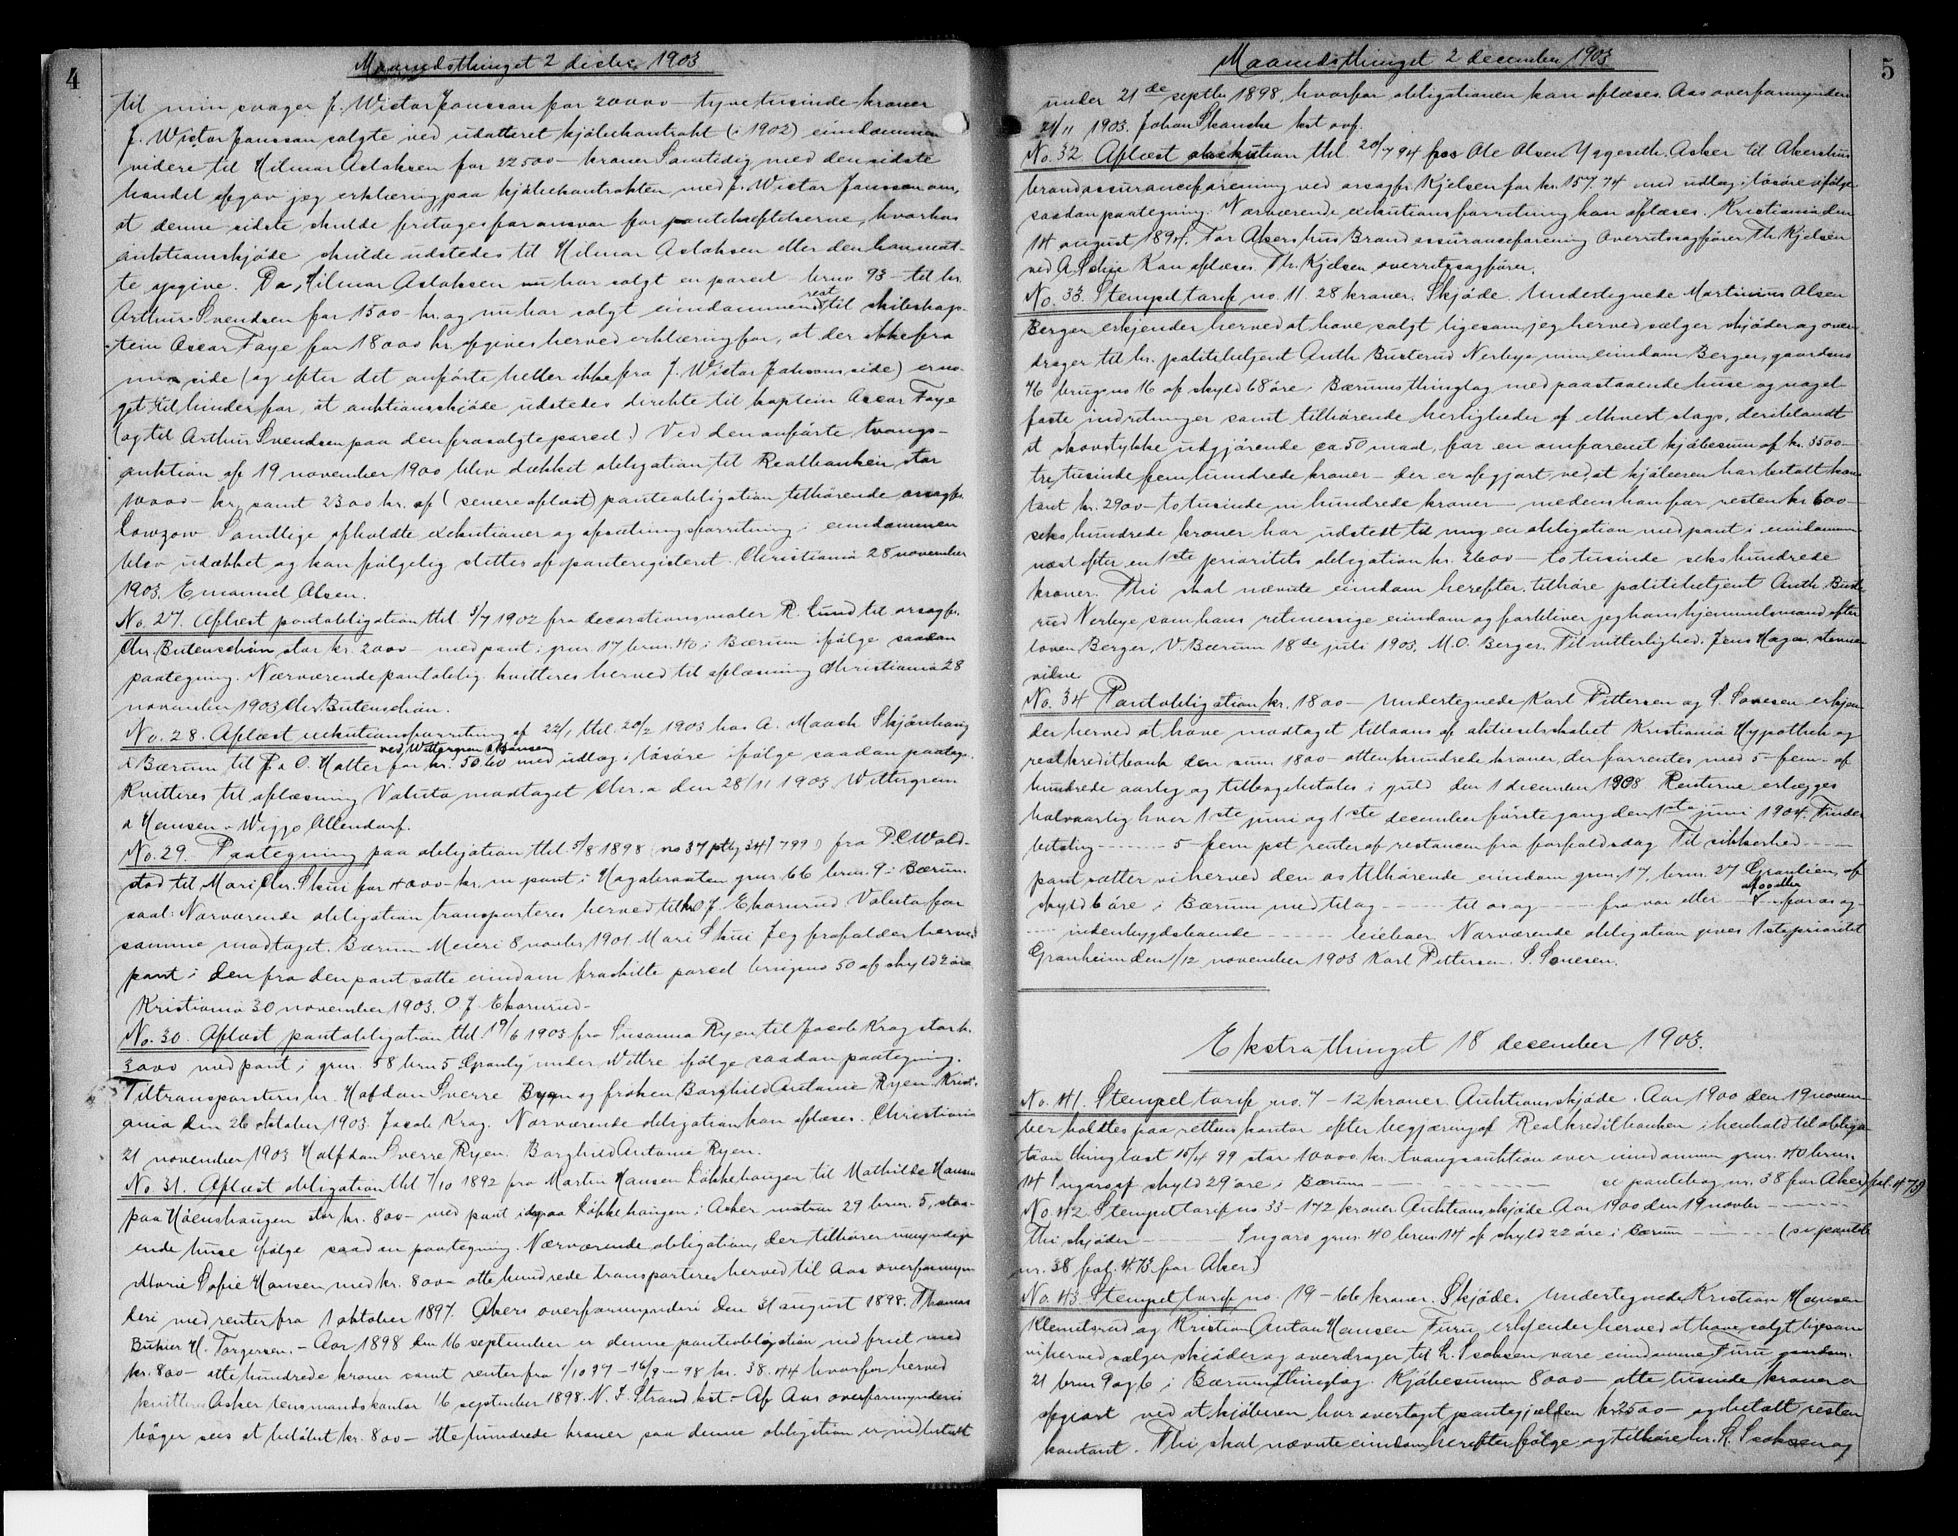 4
Maanedsthinget 2 decbr. 1903
til min svager J. Wistor Jonsson for 20000 – tyvetusinde – kroner
J. Wistor Jonsson solgte ved udatteret kjøbekontrakt (i 1902) eiendommen
videre til Hilmar Aslaksen for 22500 – kroner Samtidig med den sidste
handel afgav jeg erklæring paa kjøbekontrakten med J. Wistor Jonsson om,
at denne sidste skulde fritages for ansvar for pantehæftelserne, hvorhos
auktionsskjøde skulde udstedes til Hilmar Aslaksen eller den han maat-
te opgive. Da Hilmar Aslaksen nu har solgt en parcel – brno 93 – til hr.
Arthur Svendsen for 1500 – kr. og nu har solgt eiendommens rest til skibskap-
tein Oscar Faye for 18000 kr. afgives herved erklæring for, at der ikke fra
min side (og efter det anførte heller ikke fra J. Wistor Jonssons side) er no-
get til hinder for, at auktionsskjøde udstedes direkte til kaptein Oscar Faye
(og til Arthur Svendsen paa den frasolgte parcel.) Ved den anførte tvangs-
auktion af 19 november 1900 blev dækket obligation til Realbanken, stor
10000 – kr. samt 2300 kr. af (senere aflæst) panteobligation tilhørende orsagfr.
Lowzow Samtlige afholdte exekutioner og afsætningsforretning i eiendommen
blev udækket og kan følgelig slettes af panteregisteret. Christiania 28 november
1903. Emanuel Olsen.
No. 27. Aflæst pantobligation thl. 3/7 1902 fra decorationsmaler R. Lund til orsagfr.
Chr. Butenschøn stor kr. 2000 – med pant i grno. 17 brno. 40 i Bærum ifølge saadan
paategning. Nærværende pantoblig. kvitteres herved til aflæsning Christiania 28
november 1903 Chr. Butenschøn.
No. 28. Aflæst exekutionsforretning af 22/1 thl. 20/2 1903 hos A. Maask Skjønhaug
ved Wettergren & Hansen
i Bærum til P. & O. Hotter for kr. 50.60 med udlæg i løsøre ifølge saadan paatægn.
Kvitteres til aflæsning Valuta modtaget Chr.a den 28/11 1903 Wettergren
& Hansen v Wiggo Allendorf.
No. 29. Paategning paa obligation thl 5/8 1898 (no 37 ptbg 34 f 799) fra P. C Wold-
stad til Mari Chr. Skui for 4000 – kr. m pant i Hagabraaten grno. 66 brno. 9 i Bærum.
saal: Nærværende obligation transporteres herved til hr O J. Ekornrud Valuta for
samme modtaget. Bærum Meieri 8 novbr 1901. Mari Skui Jeg frafalder herved
pant i den fra den pantsatte eiendom fraskilte parcel brugsno 50 af skyld 2 øre
Kristiania 30 november 1903. O J. Ekornrud –
No. 30. Aflæst pantobligation thl. 19/6 1903 fra Susanna Ryen til Jacob Krag stor k.
3000 med pant i grno. 58 brno 5 Granly under Vettre ifølge saadan paategning.
Tiltransporteres hr. Halfdan Sverre Ryen og frøken Borghild Antonie Ryen. Kristi-
ania den 26 oktober 1903. Jacob Krag. Nærværende obligation kan aflæses. Christiania
21 november 1903 Halfdan Sverre Ryen. Borghild Antonie Ryen.
No 31. Aflæst obligation thl 7/10 1892 fra Martin Hansen Løkkehaugen til Mathilde Hansen
paa Høenshaugen stor kr. 800 – med pant i Løkkehaugen i Asker 29 brno. 5, staa-
ende huse ifølge saadan paategning. Nærværende obligation, der tilhører umyndige
Marie Sofie Hansen med kr. 800 – otte hundrede transporteres herved til Aas overformyn-
deri med renter fra 1 oktober 1897. Akers overformynderi den 31 august 1898. Thomas
H. Torgersen. – Aar 1898 den 16 september er denne panteobligation indfriet med
kr. 800 – otte hundrede kroner samt renter fra 1/10 97 – 16/9 – 98 kr. 38.44 hvorfor herved
kvitteres Asker lensmandskontor 16 september 1898. N. J. Strand kst. – Af Aas overformynderis
bøger sees at beløbet kr. 800 – otte hundrede kroner paa denne obligation er indbetalt
5
Maanedsthinget 2 december 1903
under 21de septbr 1898, hvorfor obligationen kan aflæses. Aas overformynderi
21/11 1903. Johan Skancke kst ovf.
No. 32 Aflæst exekution thl. 20/7 94 hos Ole Olsen Yggeseth. Asker til Akershus
brandassuranceforening ved orsagfr. Kjelsen for kr. 157.74 med udlæg i løsøre ifølge
saadan paategning. Nærværende exekutionsforretning kan aflæses. Kristiania den
14 august 1894. For Akershus Brandassuranceforening Overretssagfører Th. Kjelsen
ved A. Schie Kan aflæses. Th. Kjelsen overretssagfører.
No. 33. Stempeltarif no. 11 28 kroner. Skjøde. Undertegnede Martinius Olsen
Berger erkjender herved at have solgt ligesom jeg herved sælger skjøder og over-
drager til hr. politibetjent Anth. Busterud Nerbye min eiendom Berger, gaardsno
76 brugsno 16 af skyld 68 øre i Bærums thinglag med paastaaende huse og nagel-
faste indretninger samt tilhørende herligheder af ethvert slags, deriblandt
et skovstykke udgjørende ca 50 maal, for en omforenet kjøbesum af kr. 3500 –
tre tusinde fem hundrede kroner – der er afgjort ved, at kjøberen har betalt kon-
tant kr. 2900 – to tusinde ni hundrede kroner – medens han for resten kr 600 –
seks hundrede kroner har udstedt til mig en obligation med pant i eiendommen
næst efter en 1ste prioritets obligation kr. 2600 – to tusinde seks hundrede
kroner. Thi skal nævnte eiendom herefter tilhøre politibetjent Anth. Buste-
rud Nerbye som hans retmessige eiendom og forbliver jeg hans hjemmelsmand efter
loven Berger, V. Bærum 18de juli 1903. M. O. Berger. Til vitterlighed. Jens Haga, stevne
vidne
No. 34 Pantobligation kr. 1800 – Undertegnede Karl Pettersen og S. Sonesen erkjen-
der herved at have modtaget tillaans af aktieselskabet Kristiania Hypothek og
realkreditbank den sum 1800 – otten hundrede kroner, der forrentes med 5 – fem – af
hundrede aarlig og tilbagebetales i guld den 1 december 1908 Renterne erlægges
halvaarlig hver 1ste juni og 1ste december første gang den 1ste juni 1904. Finder
betaling – – – 5 – fem pct. renter af restancen fra forfaldsdag Til sikkerhed – – –
pant sætter vi herved den os tilhørende eiendom grno. 17, brno. 27 Granlien af
skyld 6 øre i Bærum med tilæg – – – til os og – – – fra vor eller – af os eller – for os og –
– – indenbygdsboende – – – leilaer. Nærværende obligation gives 1ste prioritet
Granheim den 1/12 november 1903 Karl Pettersen. S. Sonesen.
Ekstrathinget 18 december 1903.
No. 41. Stempeltarif no. 7 – 12 kroner. Auktionsskjøde. Aar 1900 den 19 novem-
ber holdtes paa rettens kontor efter begjæring af Realkreditbanken i henhold til obliga-
tion thinglæst 15/4 99 stor 10000 kr. tvangsauktion over eiendommen grno. 40 brno.
14 Ingaro af skyld 29 øre i Bærum – – – se pantebog nr. 38 for Aker) fol. 473)
No. 42. Stempeltarif no 33 – 172 kroner Auktionsskjøde. Aar 1900 den 19 novbr – – –
Thi skjøder – – – Ingaro grno. 40 brno 14 af skyld 22 øre i Bærum – – – (se panteb
nr. 38 fol. 473 for Aker)
No. 43. Stempeltarif no. 19 – 66 kroner. Skjøde. Undertegnede Kristian Hansen
Klemetsrud og Kristian Anton Hansen Furu erkjender herved at have solgt ligesom
vi herved sælger skjøder og overdrager til L. Isaksen vore eiendomme Furu gaardsno.
21 brno 9 og 6 i Bærums thinglag. Kjøbesummen 8000 – otte tusinde kroner er
afgjort ved at kjøberen har overtaget pantegjælden kr. 2500 – og betalt resten
kontant. Thi skal nævnte eiendom herefter følge og tilhøre hr. L. Isaksen og